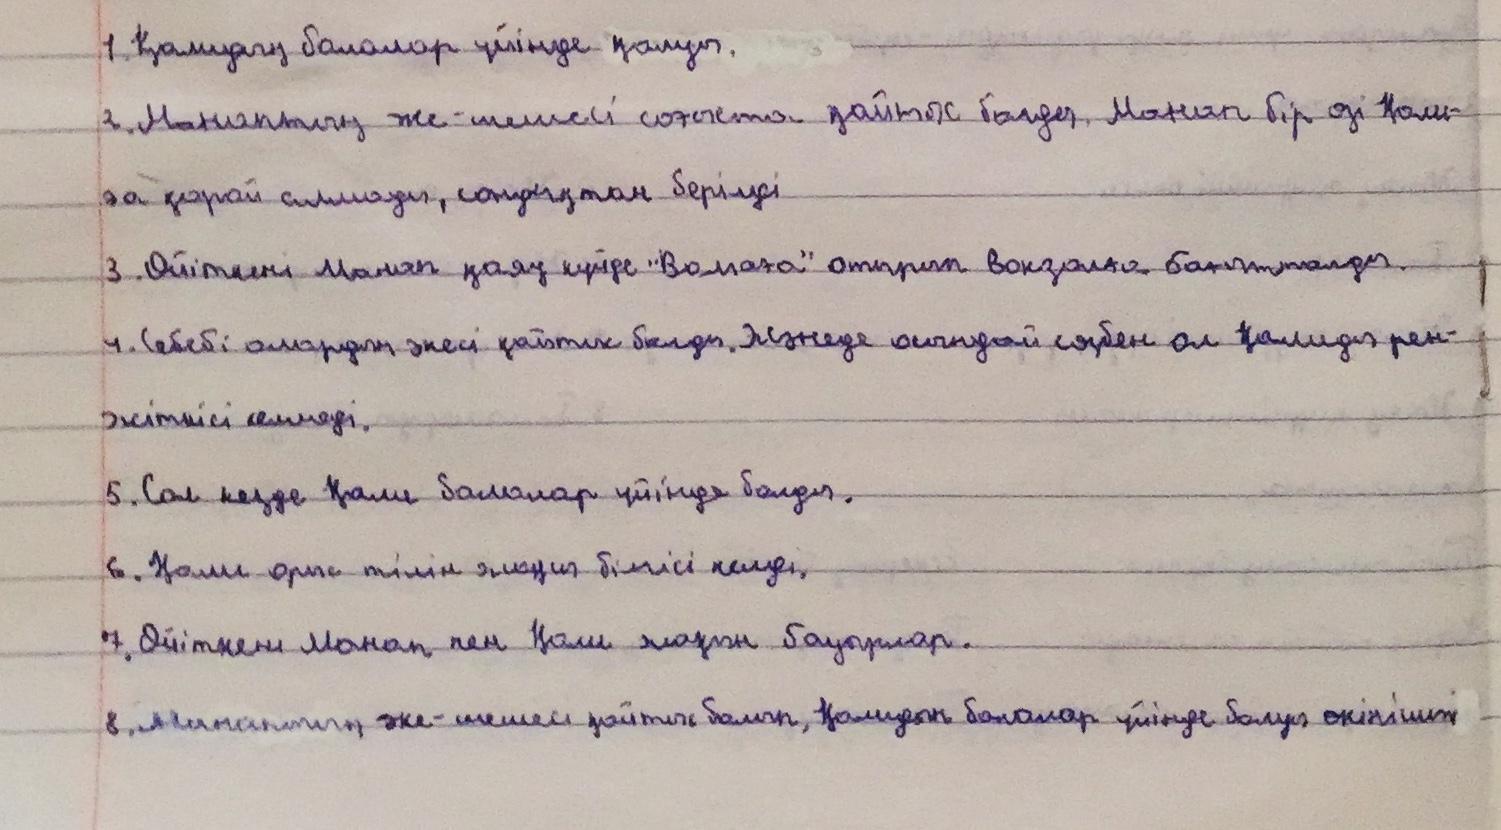 1. Қалидың балалар үйінде қалуы.
2. Манаптың әке-шешесі соғыста қайтыс болды. Манап бір өзі Қали-
ға қарай алмады, сондықтан берілді
3. Өйткені Манап қаяу күйде "Волгаға" отырып вокзалға бағытталды.
4. Себебі олардың әкесі қайтыс болды. Және де осындай сөзбен ол Қалиды рен-
жіткісі келмеді.
5. Сол кезде Қали балалар үйінде болды.
6. Қали орыс тілін жақсы білгісі келді.
7. Өйткені Манап пен Қали жақын бауырлар.
8. Манаптың әке-шешесі қайтыс болып, Қалидың балалар үйінде болуы өкінішті